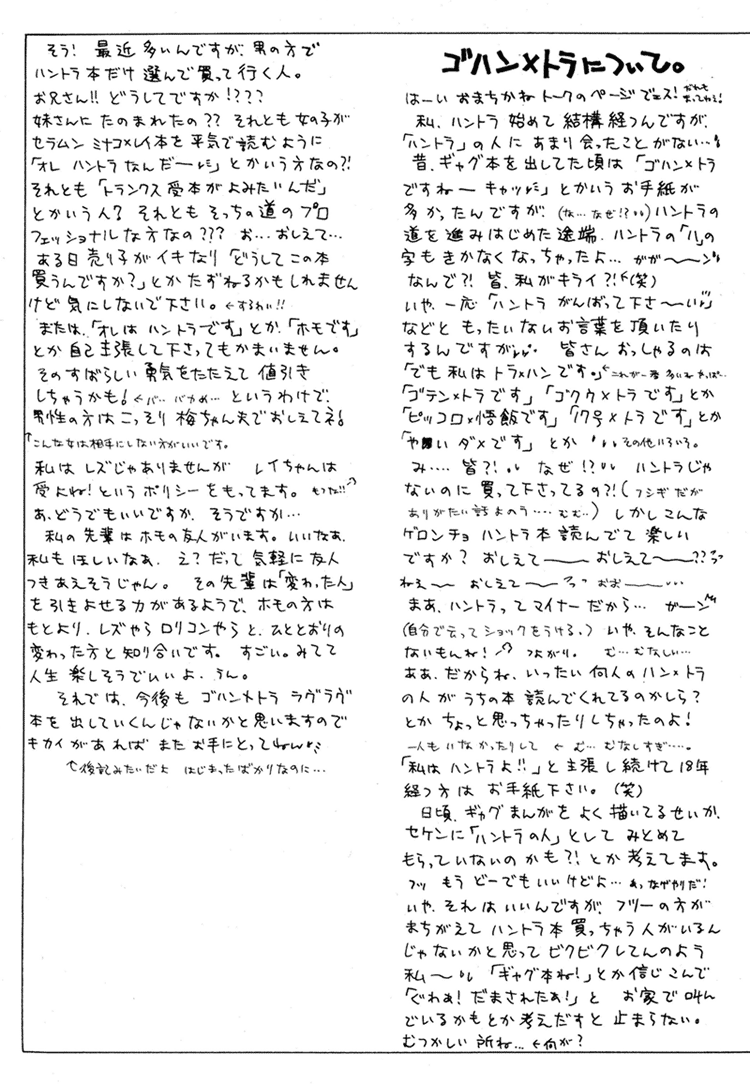 ゴハン×トラについて。
はーい おまちかね トークのページでェス!
私、ハントラ 始めて 結構 経つんですが、
「ハントラ」の人に あまり 会ったことがない…
昔、ギャグ本を 出してた頃は 「ゴハン×トラ
ですねー キャッ」とかいう お手紙が
多かったんですが、(な…なぜ!?)ハントラの
道を 進みはじめた途端、ハントラの「ハ」の
字も きかなくなっちゃったよ… ががーーン
なんで?! 皆、私が キライ?!(笑)
いや、一応「ハントラ がんばって 下さーーい」
などと もったいないお言葉を 頂いたり
するんですが 皆さん おっしゃるのは
「でも 私は トラ×ハンです。」
「ゴテン×トラです」「ゴクウ×トラです」とか
「ピッコロ×悟飯です」「17号×トラです」とか
とか その他いろいろ。
み…… 皆?! なぜ!? ハントラじゃ
ないのに 買って下さってるの?!(フシギだが
ありがたい話よのう……むむ…) しかしこんな
ゲロンチョ ハントラ本 読んでて 楽しい
ですか? おしえてーー おしえてーー??
ねえーー おしえてーー おおーー…
まあ、ハントラって マイナーだから… がーーン
(自分で云って ショックをうける。) いや、そんなこと
ないもんね! つよがり。 む… むなしい…
ああ、だからね、いったい 何人の ハン×トラ
の人が うちの本 読んでくれてるのかしら?
とか ちょっと 思っちゃったりしちゃったのよ!
一人も いなかったりして ← む… むなしすぎ…。
「私は ハントラよ!!」と主張し続けて 18年
経つ方は お手紙下さい。(笑)
日頃、ギャグまんがを よく描いてるせいか、
セケンに「ハントラの人」として みとめて
もらっていないの かも?! とか 考えてます。
フッ もう どーでもいいけどよ… あっ なげやりだ!
いや、それは いいんですが、フリーの方が
まちがえて ハントラ本 買っちゃう人がいるん
じゃないかと思って ビクビクしてんのよう
私〜 「ギャグ本ね!」とか信じこんで
「ぐわぁ! だまされたぁ!」と お家で 叫ん
でいるかもとか 考えだすと 止まらない。
むつかしい 所ね… ←何が?
そう! 最近 多いんですが、男の方で
ハントラ本だけ 選んで買って行く人。
お兄さん!! どうしてですか!???
妹さんに たのまれたの?? それとも 女の子が
セラムン ミナコ×レイ本を 平気で読むように
「オレ ハントラなんだー」とかいう方なの?!
それとも「トランクス受本が よみたいんだ」
とかいう人? それとも そっちの道の プロ
フェッショナルな方なの??? お…おしえて…
ある日 売り子が イキなり「どうしてこの本
買うんですか?」とか たずねるかもしれません
けど 気にしないで下さい。←するわい!!
または、「オレは ハントラです」とか、「ホモです」
とか 自己主張して下さっても かまいません。
そのすばらしい 勇気をたたえて 値引き
しちゃうかも! ←バ…バカめ… というわけで、
男性の方は こっそり 梅ちゃん夫で おしえてネ!
↑こんな女は相手にしない方がいいです。
私は レズじゃありませんが レイちゃんは
受よね! という ポリシーを もってます。 もつな!!
あ、どうでもいいですか、そうですか…
私の先輩は ホモの友人がいます。いいなあ、
私も ほしいなあ、え? だって 気軽に 友人
つきあえそうじゃん。 その先輩は「変わった人」
を 引きよせる力があるようで、ホモの方は
もとより、レズやら ロリコンやらと、ひととおりの
変わった方と 知り合いです。 すごい。みてて
人生 楽しそうでいいよ、うん。
それでは、今後も ゴハン×トラ ラヴラヴ
本を 出していくんじゃないかと思いますので
キカイがあれば また お手にとってねん
↑後記みたいだよ はじまったばかりなのに…